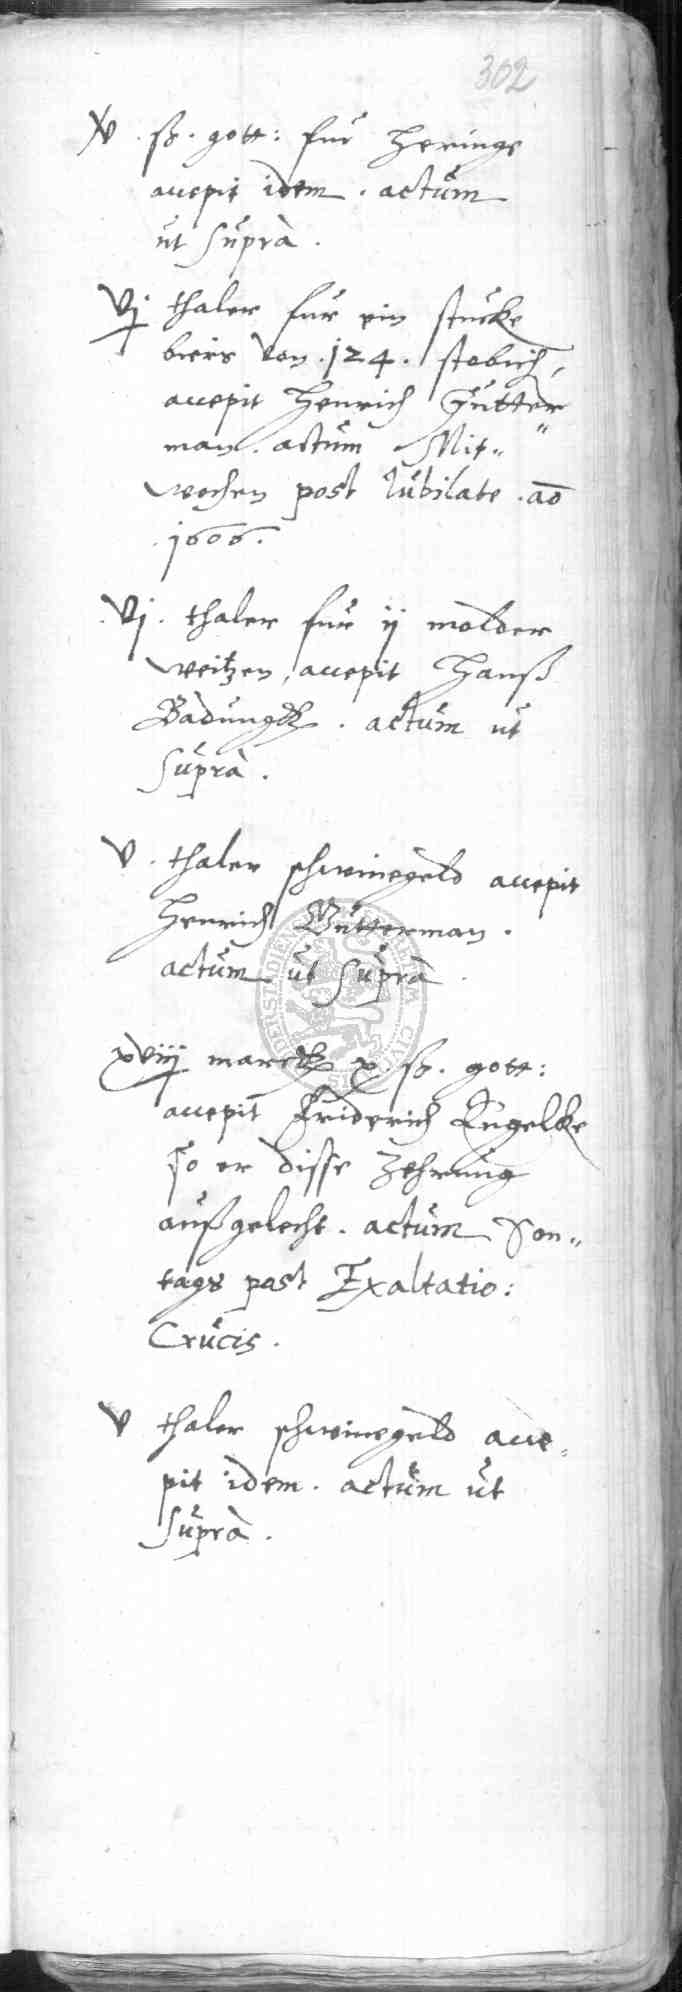 302
xv . ß. gott: fur Heringe
accepit idem . actum
ut supra .
vj thaler fur ein stucke
biers von .124. stobich,
accepit Henrich Gutter„
man . actum Mit„
wochen post Iubilate . ao
.1606.
.vj. thaler fur ij molder
weitzen, accepit Hanß
Badungk . actum ut
supra .
v . thaler schwinegeld accepit
Henrich Gutterman .
actum ut supra .
xviij marck x. ß. gott:
accepit Friderich Engelke
so er disse Zehrung
außgelecht . actum Son„
tags post Exaltatio:
Crucis .
v thaler schwinegeld acce„
pit idem . actum ut
supra .